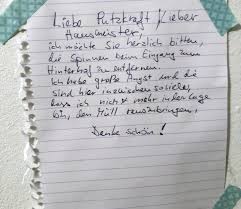 Liebe Putzkraft / Lieber
Hausmeister,
ich möchte Sie herzlich bitten,
die Spinnen beim Eingang zum
Hinterhof zu entfernen.
Ich habe große Angst und die
sind hier inzwischen so viele,
dass ich nicht mehr in der Lage
bin, den Müll rauszubringen.
Danke schön!